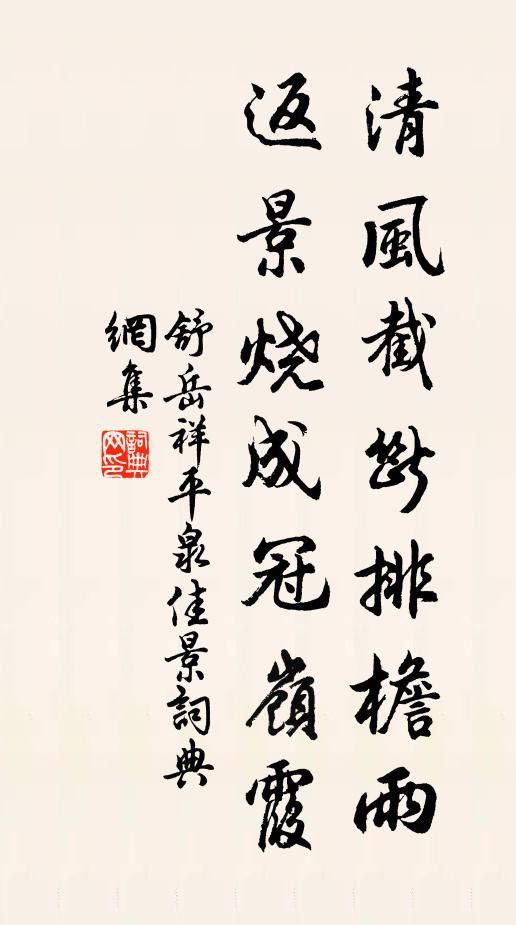 清風截断排檐雨
返景燒成冠嶺霞
舒岳祥平泉佳景詞典
網集
詞典
网印